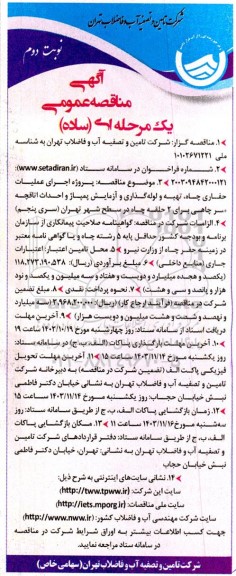 شرکت تامین و تصفیه آب و فاضلاب تهران
نوبت دوم
آگهی
مناقصه عمومی
یک مرحله ای (ساده)
۱. مناقصه گزار: شرکت تامین و تصفیه آب و فاضلاب تهران به شناسه
ملی
۲. شماره فراخوان در سامانه ستاد (www.setadiran.ir):
۳. موضوع مناقصه: پروژه اجرای عملیات
حفاری چاه، تهیه و لوله‌گذاری و آزمایش پمپاژ و احداث اتاقچه
سر چاهی برای چاه در سطح شهر تهران (سری پنجم)
۴. الزامات متقاضی شرکت در مناقصه: گواهینامه صلاحیت پیمانکاری از سازمان
برنامه و بودجه کشور حداقل پایه ۵ رشته چاه و یا گواهی نامه معتبر
در زمینه حفر چاه از وزارت نیرو ۵. محل تامین اعتبار: اعتبارات
جاری (منابع داخلی) ۶. مبلغ برآوردی (ریال): ۱۱۸,۲۷۳,۱۹۰,۵۳۸
(یکصد و هجده میلیارد و دویست و هفتاد و سه میلیون و یکصد و نود
هزار و پانصد و سی و هشت) ۷. نحوه پرداخت: نقدی ۸. مبلغ تضمین
شرکت در مناقصه (فرآیند ارجاع کار) (ریال):
و نهصد و شصت و هشت میلیون و دویست هزار) ۹. آخرین مهلت
دریافت اسناد از سامانه ستاد: روز چهارشنبه مورخ ۱۴۰۳/۱۰/۱۹ ساعت ۱۹
۱۰. آخرین مهلت بارگذاری پاکات (الف، ب، ج) در سامانه ستاد:
روز یکشنبه مورخ ۱۴۰۳/۱۱/۱۴ ساعت ۱۵ ۱۱. آخرین مهلت تحویل
فیزیکی پاکت الف (تضمین شرکت در مناقصه) به دبیرخانه شرکت
تامین و تصفیه آب و فاضلاب تهران به نشانی خیابان دکتر فاطمی
نبش خیابان حجاب: روز یکشنبه مورخ ۱۴۰۳/۱۱/۱۴ ساعت ۱۵
۱۲. زمان بازگشایی پاکات الف، ب، ج از طریق سامانه ستاد: روز
سه‌شنبه مورخ ۱۴۰۳/۱۱/۱۶ ساعت ۱۱ ۱۳. مکان بازگشایی پاکات
الف، ب، ج از طریق سامانه ستاد: دفتر قراردادهای شرکت تامین
و تصفیه آب و فاضلاب تهران به نشانی: تهران، خیابان دکتر فاطمی
نبش خیابان حجاب
۱۴. نشانی سایت‌های اینترنتی به شرح ذیل:
سایت این شرکت: (http://tww.tpww.ir)
سایت ملی مناقصات: (http://iets.mporg.ir)
سایت شرکت مهندسی آب و فاضلاب کشور: (http://www.nww.ir)
جهت کسب اطلاعات بیشتر به اوراق شرایط شرکت در مناقصه
در سامانه ستاد مراجعه نمایید.
شرکت تامین و تصفیه آب و فاضلاب تهران (سهامی خاص)